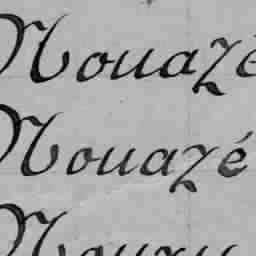 Nouazé
Nouazé